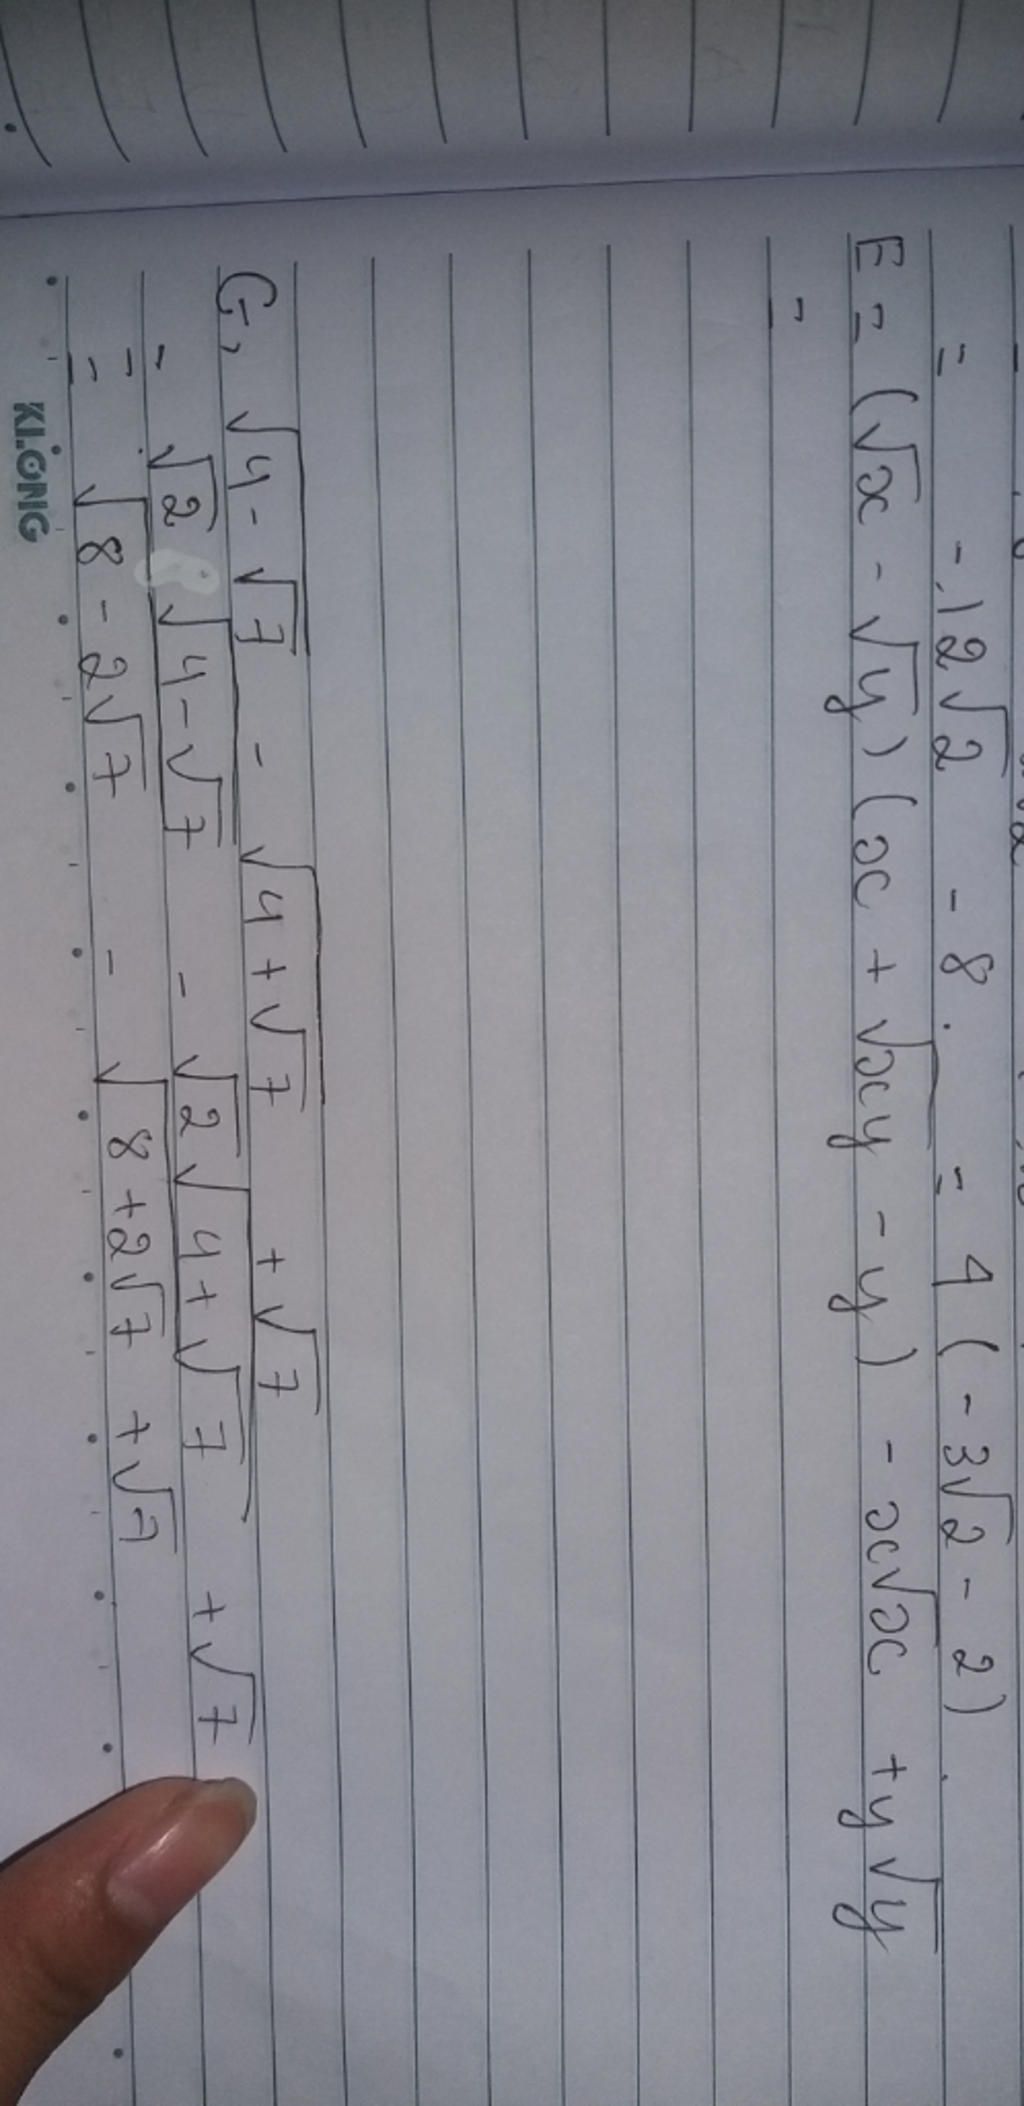 = -12√2 - 8 = 4(-3√2 - 2)
E = (√x - √y)(x + √xy - y) - x√x + y√y
=
G, √(4 - √7) - √(4 + √7) + √7
= √2 √(4 - √7) - √2 √(4 + √7) + √7
= √(8 - 2√7) - √(8 + 2√7) + √7
KLONG